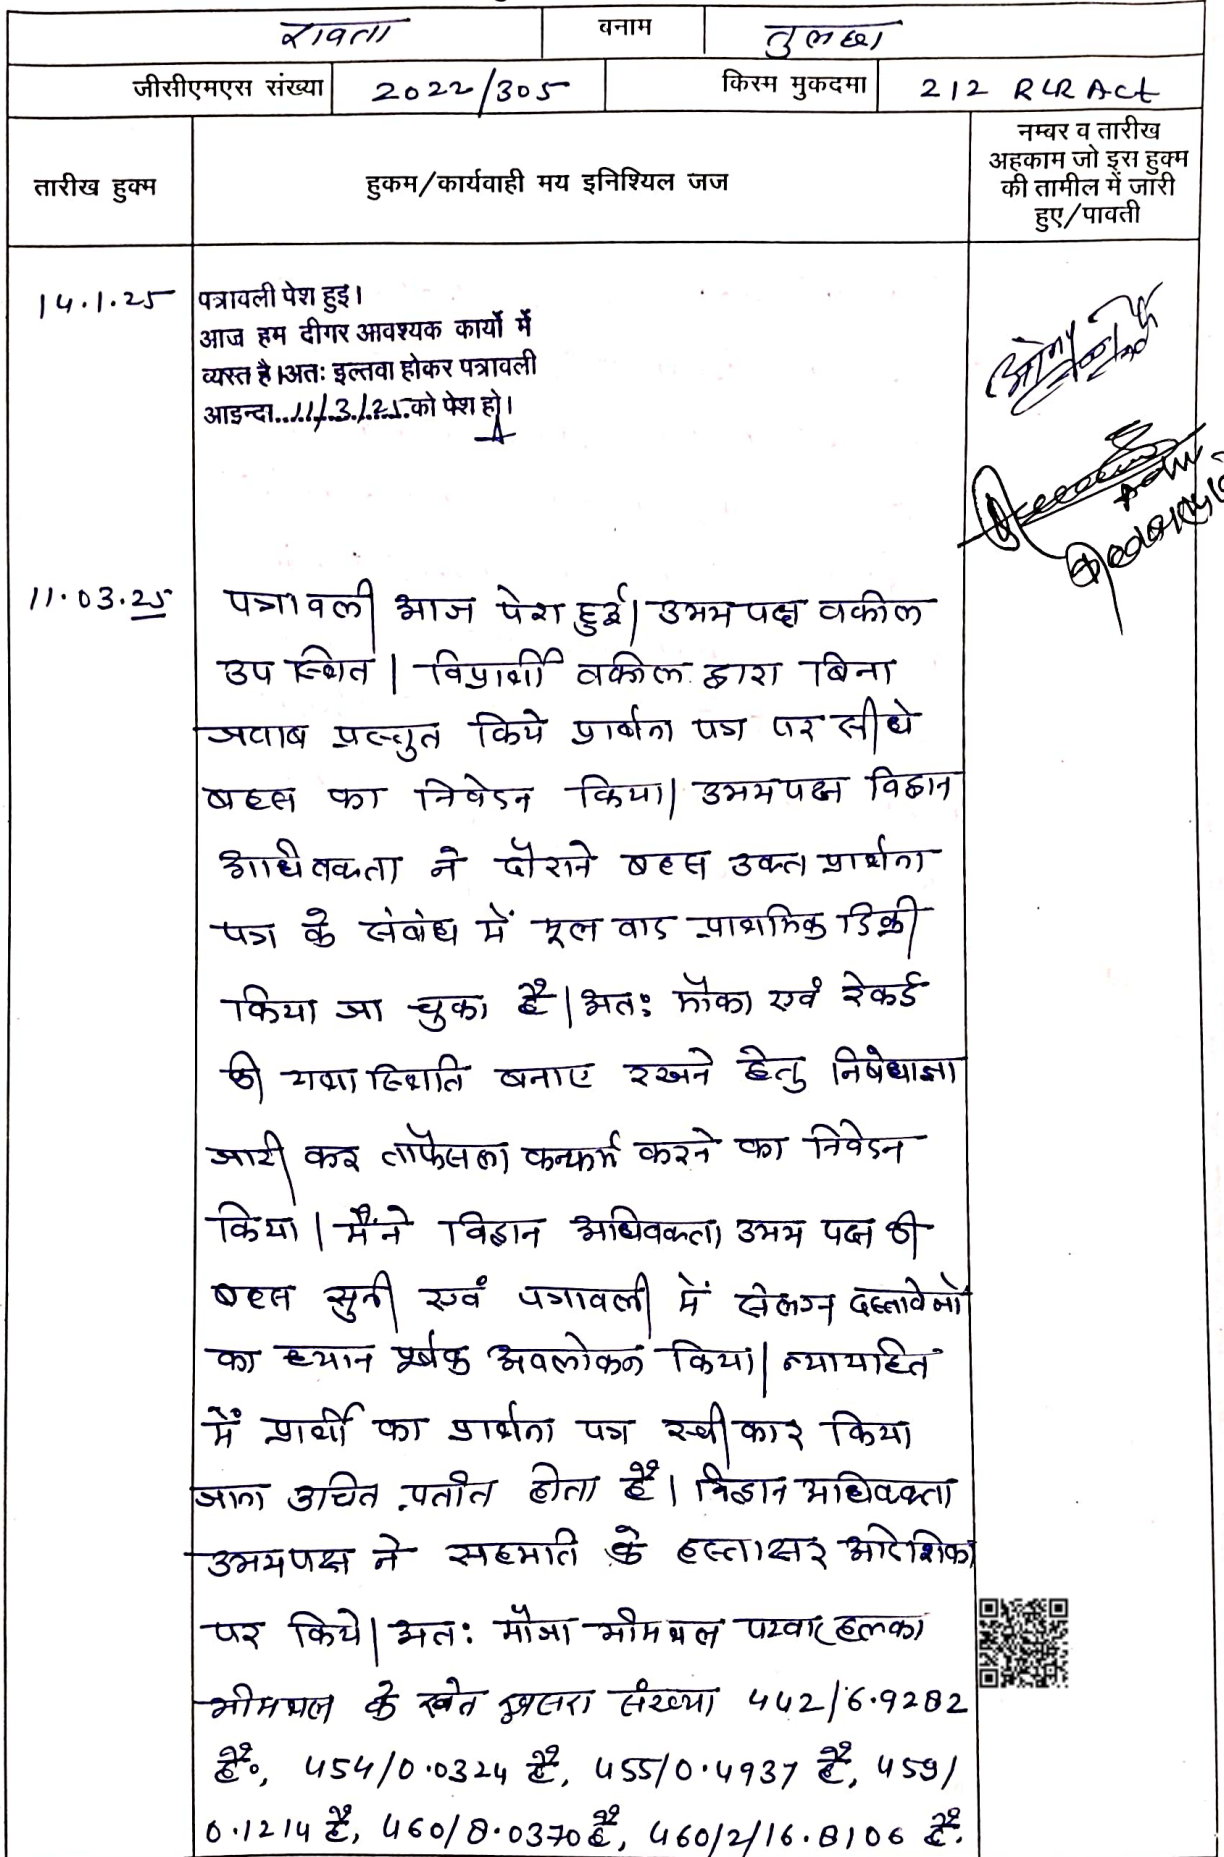 रावता वनाम तुलछा
जीसीएमएस संख्या 2022/305 किस्म मुकदमा 212 RLR Act
तारीख हुक्म हुकम/कार्यवाही मय इनिश्यिल जज नम्बर व तारीख
अहकाम जो इस हुक्म
की तामील में जारी
हुए/पावती
14.1.25 पत्रावली पेश हुइ।
आज हम दीगर आवश्यक कार्यो में
व्यस्त है।अतः इल्तवा होकर पत्रावली
आइन्दा..11/3/25..को पेश हो।
11.03.25 पत्रावली आज पेश हुई। उभयपक्ष वकील
उपस्थित। विप्रार्थी वकील द्वारा बिना
जवाब प्रस्तुत किये प्रार्थना पत्र पर सीधे
बहस का निवेदन किया। उभयपक्ष विद्वान
अधिवक्ता ने दौराने बहस उक्त प्रार्थना
पत्र के संबंध में मूल वाद प्राथमिक डिक्री
किया जा चुका है। अतः मौका एवं रेकर्ड
की यथास्थिति बनाए रखने हेतु निषेधाज्ञा
जारी कर ताफैसला कन्फर्म करने का निवेदन
किया। मैंने विद्वान अधिवक्ता उभय पक्ष की
बहस सुनी एवं पत्रावली में संलग्न दस्तावेजो
का ध्यान पूर्वक अवलोकन किया। न्यायहित
में प्रार्थी का प्रार्थना पत्र स्वीकार किया
जाना उचित प्रतीत होता है। विद्वान अधिवक्ता
उभयपक्ष ने सहमति के हस्ताक्षर आदेशिका
पर किये। अतः मौजा भीमथल पटवार हलका
भीमथल के खेत खसरा संख्या 442/6.9282
है०, 454/0.0324 है, 455/0.4937 है, 459/
0.1214 है, 460/8.0370 है, 460/2/16.8106 है.